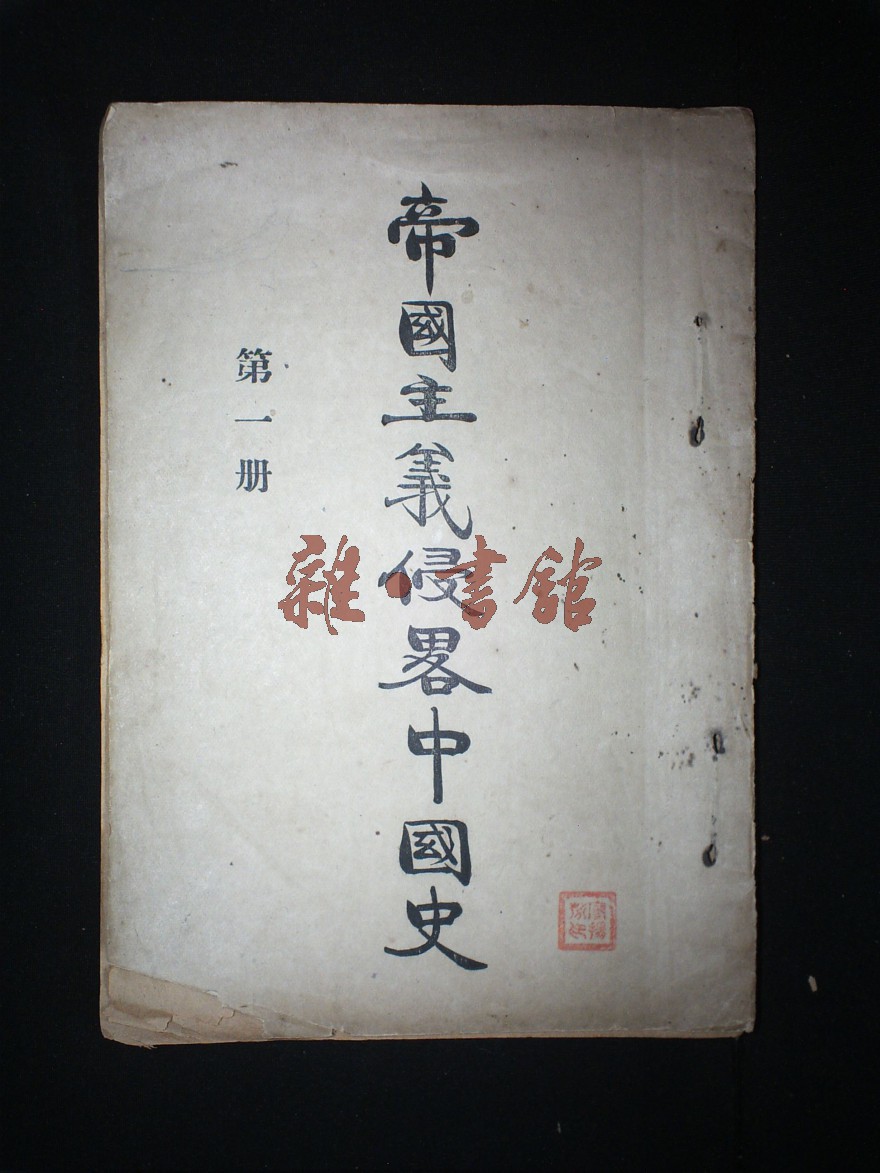 帝國主義侵畧中國史
第一册
雜·書館